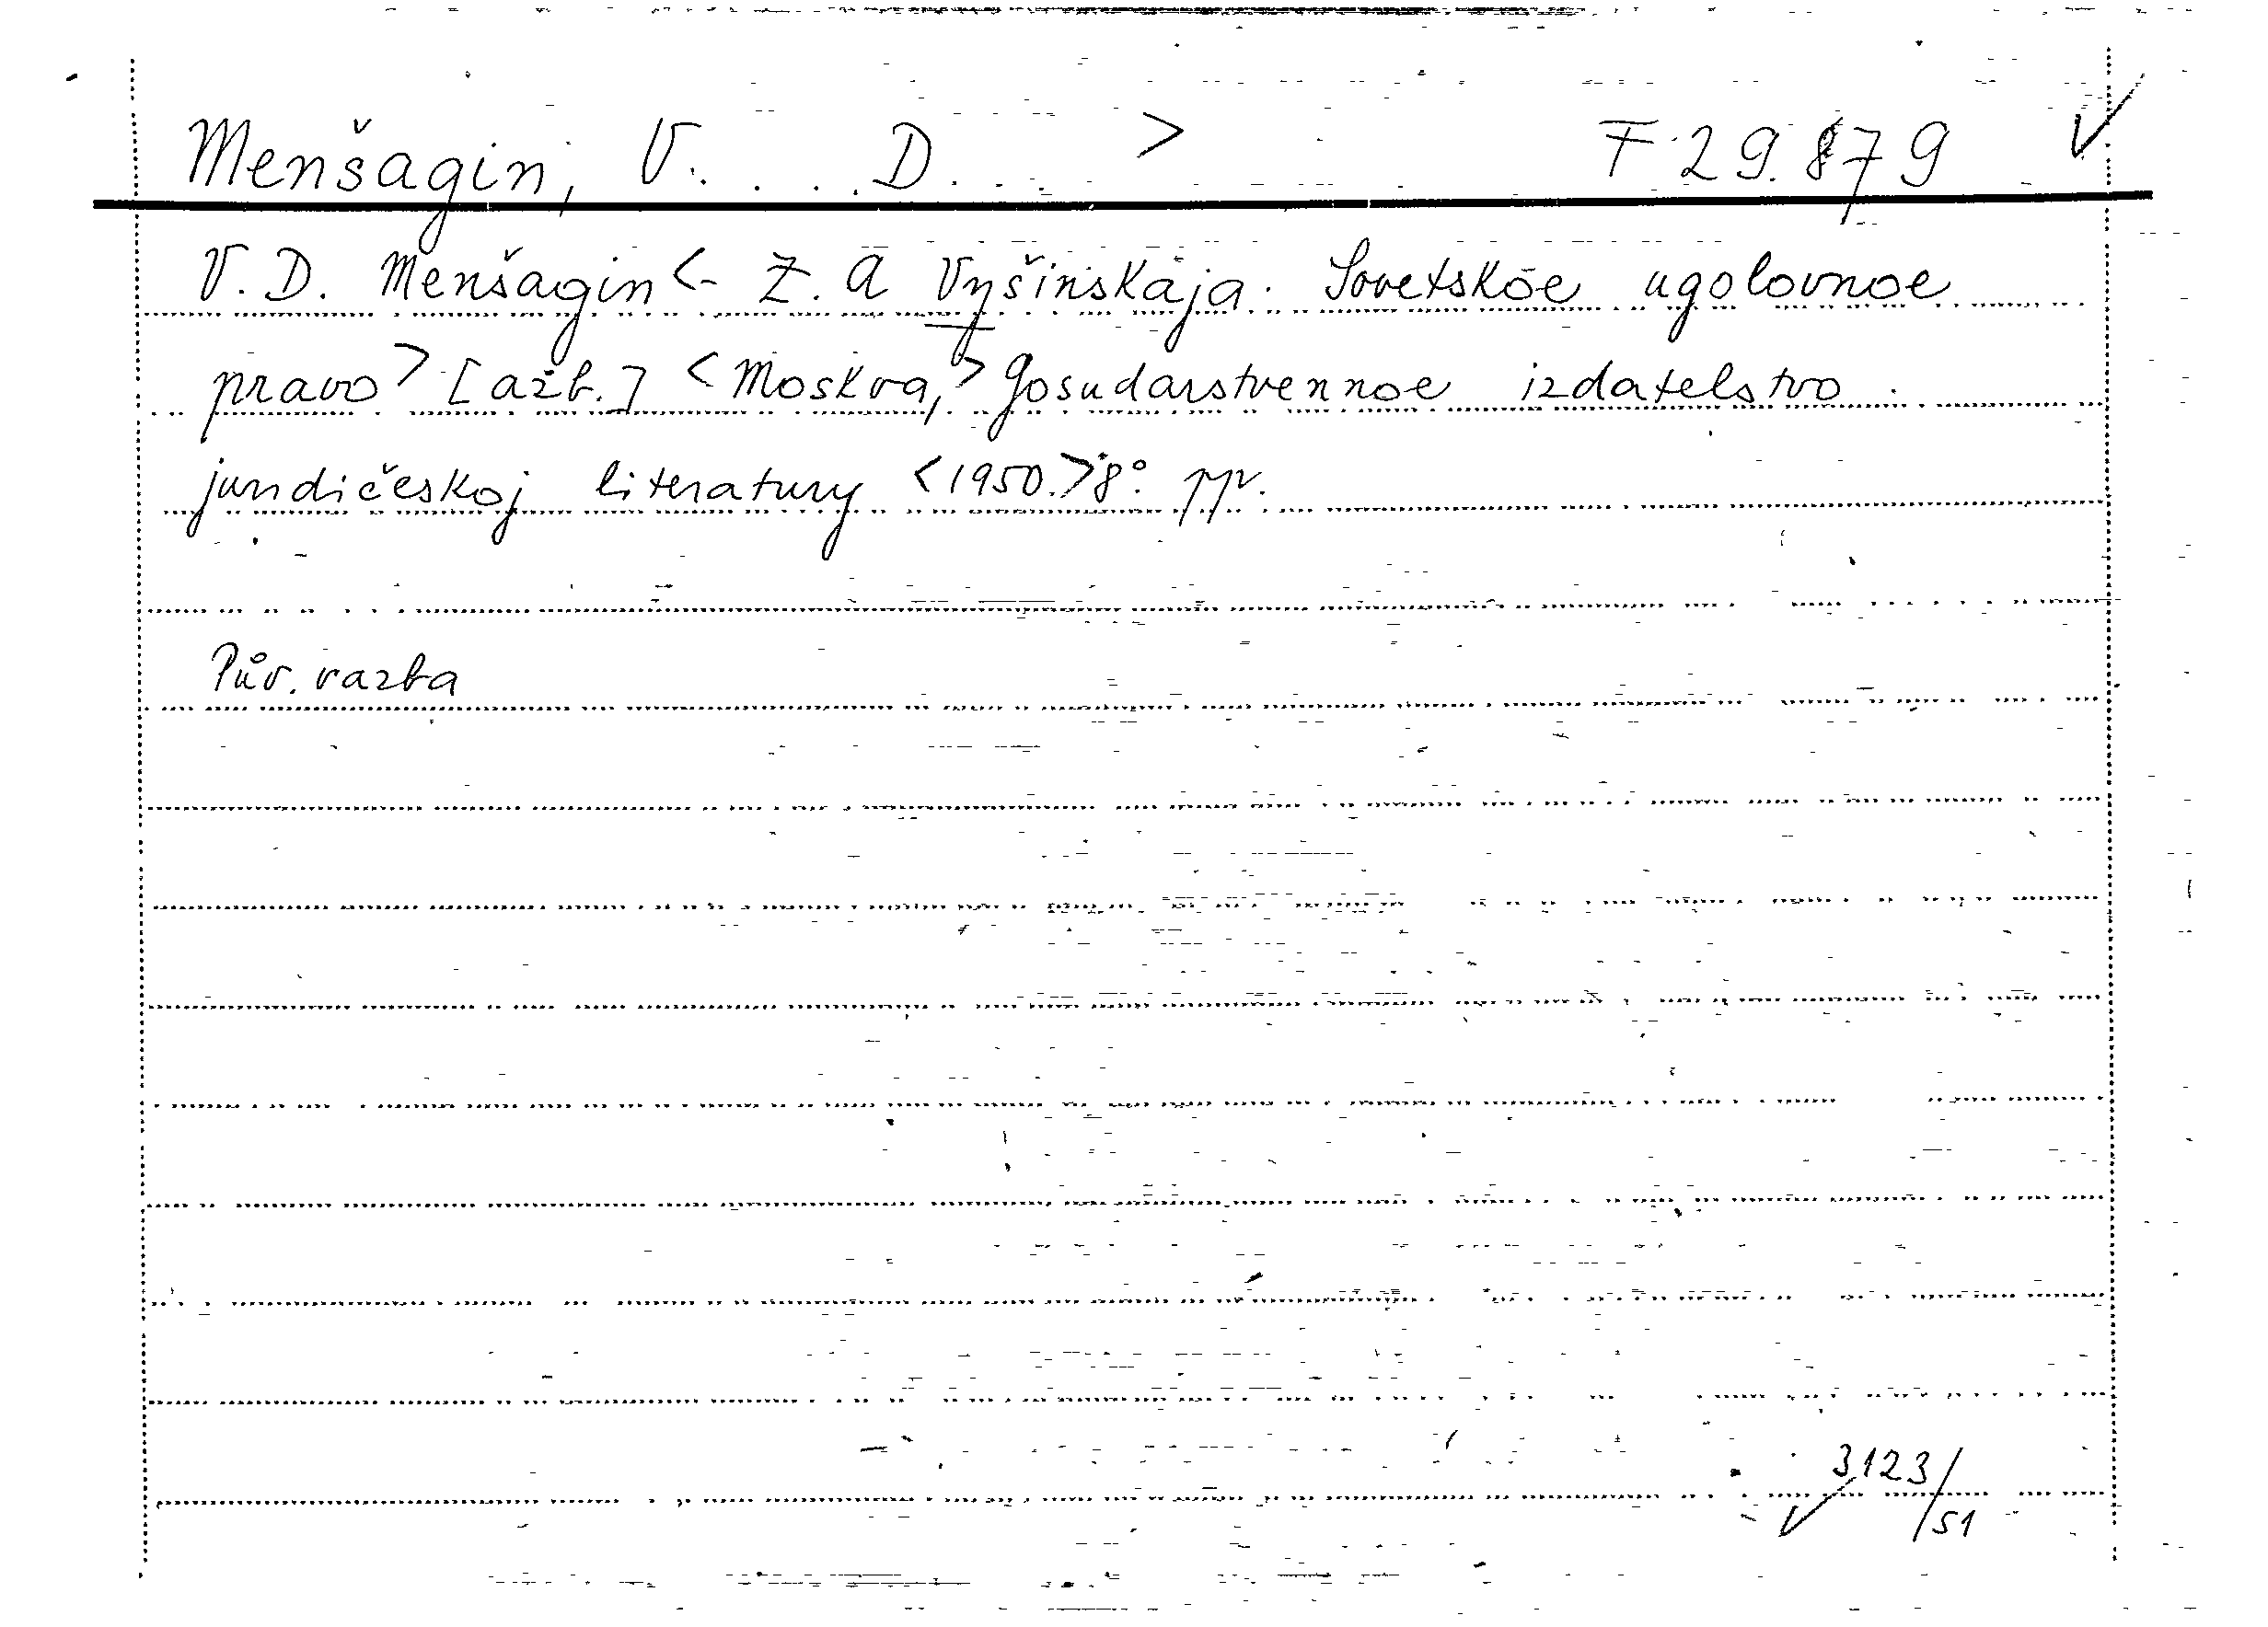 Menšagin, V. . . . D. . . > F 29.879 V
V.D. Menšagin <- Z. A Vyšinskaja. Sovetskoe ugolovnoe
pravo > [azb.] < Moskva, > Gosudarstvennoe izdatelstvo
juridičeskoj literatury < 1950. > 8° ppv.
Pův. vazba
3123/51